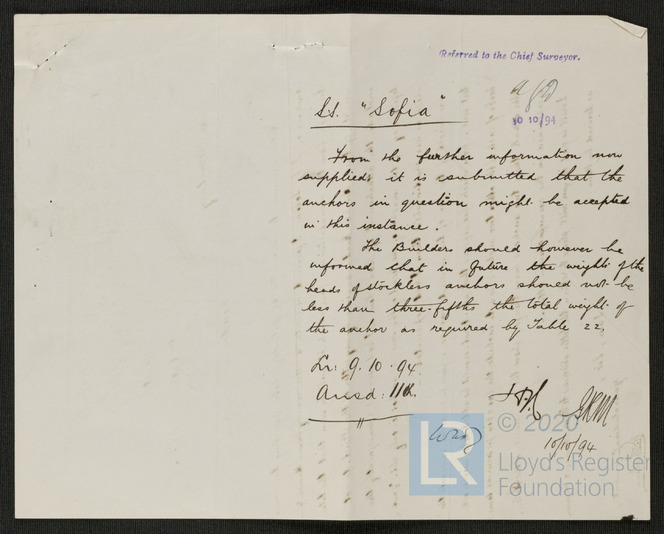 Referred to the Chief Surveyor.
10 10/94
S.S. "Sofia"
From the further information now
supplied it is submitted that the
anchors in question might be accepted
in this instance.
The Builders should however be
informed that in future the weights of the
heads of stockless anchors should not be
less than three-fifths the total weight of
the anchor as required by Table 22.
Lr: 9.10.94
Ansd: 11th.
10/10/94
LR
© 2020
Lloyd's Register
Foundation